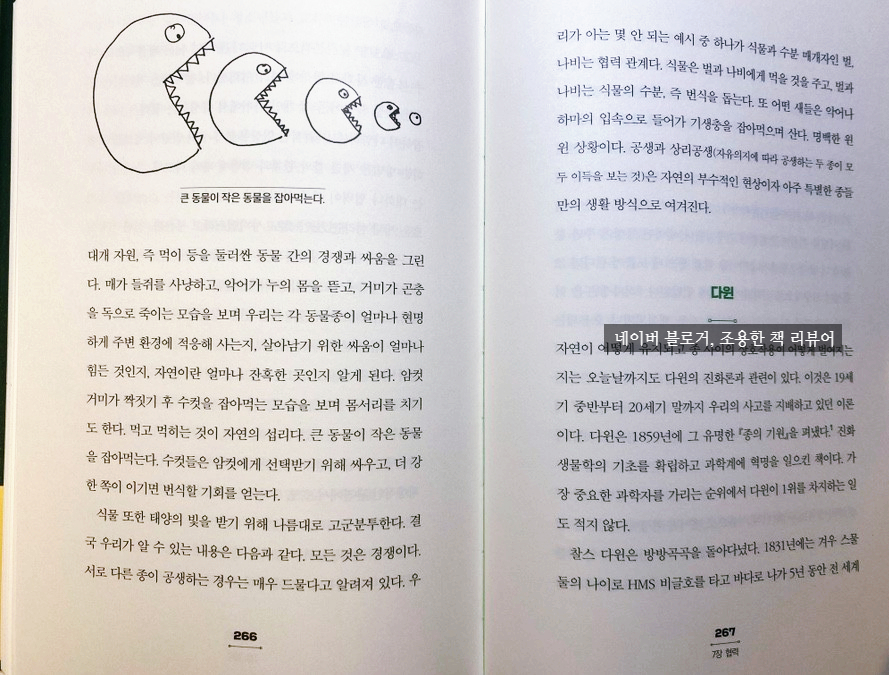 큰 동물이 작은 동물을 잡아먹는다.
대개 자원, 즉 먹이 등을 둘러싼 동물 간의 경쟁과 싸움을 그린
다. 매가 들쥐를 사냥하고, 악어가 누의 몸을 뜯고, 거미가 곤충
을 독으로 죽이는 모습을 보며 우리는 각 동물종이 얼마나 현명
하게 주변 환경에 적응해 사는지, 살아남기 위한 싸움이 얼마나
힘든 것인지, 자연이란 얼마나 잔혹한 곳인지 알게 된다. 암컷
거미가 짝짓기 후 수컷을 잡아먹는 모습을 보며 몸서리를 치기
도 한다. 먹고 먹히는 것이 자연의 섭리다. 큰 동물이 작은 동물
을 잡아먹는다. 수컷들은 암컷에게 선택받기 위해 싸우고, 더 강
한 쪽이 이기면 번식할 기회를 얻는다.
식물 또한 태양의 빛을 받기 위해 나름대로 고군분투한다. 결
국 우리가 알 수 있는 내용은 다음과 같다. 모든 것은 경쟁이다.
서로 다른 종이 공생하는 경우는 매우 드물다고 알려져 있다. 우
266
리가 아는 몇 안 되는 예시 중 하나가 식물과 수분 매개자인 벌,
나비는 협력 관계다. 식물은 벌과 나비에게 먹을 것을 주고, 벌과
나비는 식물의 수분, 즉 번식을 돕는다. 또 어떤 새들은 악어나
하마의 입속으로 들어가 기생충을 잡아먹으며 산다. 명백한 윈
윈 상황이다. 공생과 상리공생(자유의지에 따라 공생하는 두 종이 모
두 이득을 보는 것)은 자연의 부수적인 현상이자 아주 특별한 종들
만의 생활 방식으로 여겨진다.
다윈
네이버 블로거, 조용한 책 리뷰어
자연이 어떻게 유지되고 종 사이의 상호작용이 어떻게 벌어지는
지는 오늘날까지도 다윈의 진화론과 관련이 있다. 이것은 19세
기 중반부터 20세기 말까지 우리의 사고를 지배하고 있던 이론
이다. 다윈은 1859년에 그 유명한 『종의 기원』을 펴냈다.¹ 진화
생물학의 기초를 확립하고 과학계에 혁명을 일으킨 책이다. 가
장 중요한 과학자를 가리는 순위에서 다윈이 1위를 차지하는 일
도 적지 않다.
찰스 다윈은 방방곡곡을 돌아다녔다. 1831년에는 겨우 스물
둘의 나이로 HMS 비글호를 타고 바다로 나가 5년 동안 전 세계
267
7장 협력